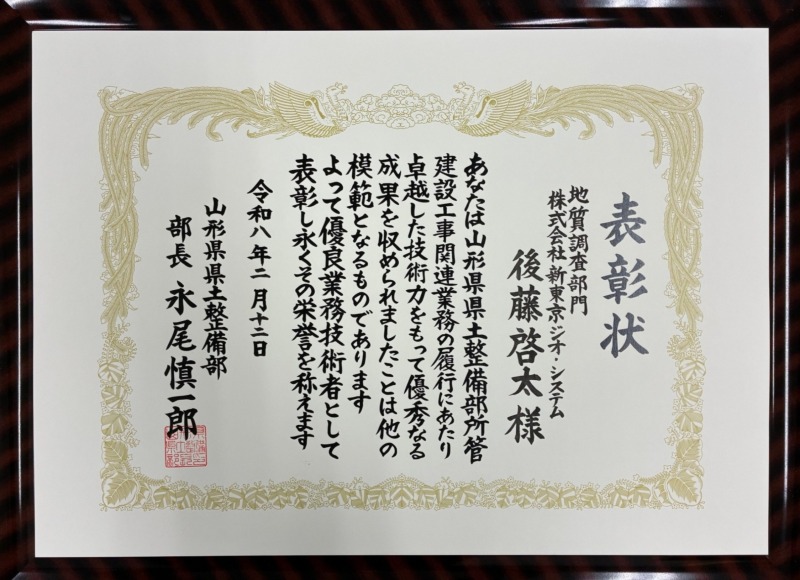 表彰状
地質調査部門
株式会社新東京ジオ・システム
後藤啓太様
あなたは山形県県土整備部所管
建設工事関連業務の履行にあたり
卓越した技術力をもって優秀なる
成果を収められましたことは他の
模範となるものであります
よって優良業務技術者として
表彰し永くその栄誉を称えます
令和八年二月十二日
山形県県土整備部
部長 永尾慎一郎